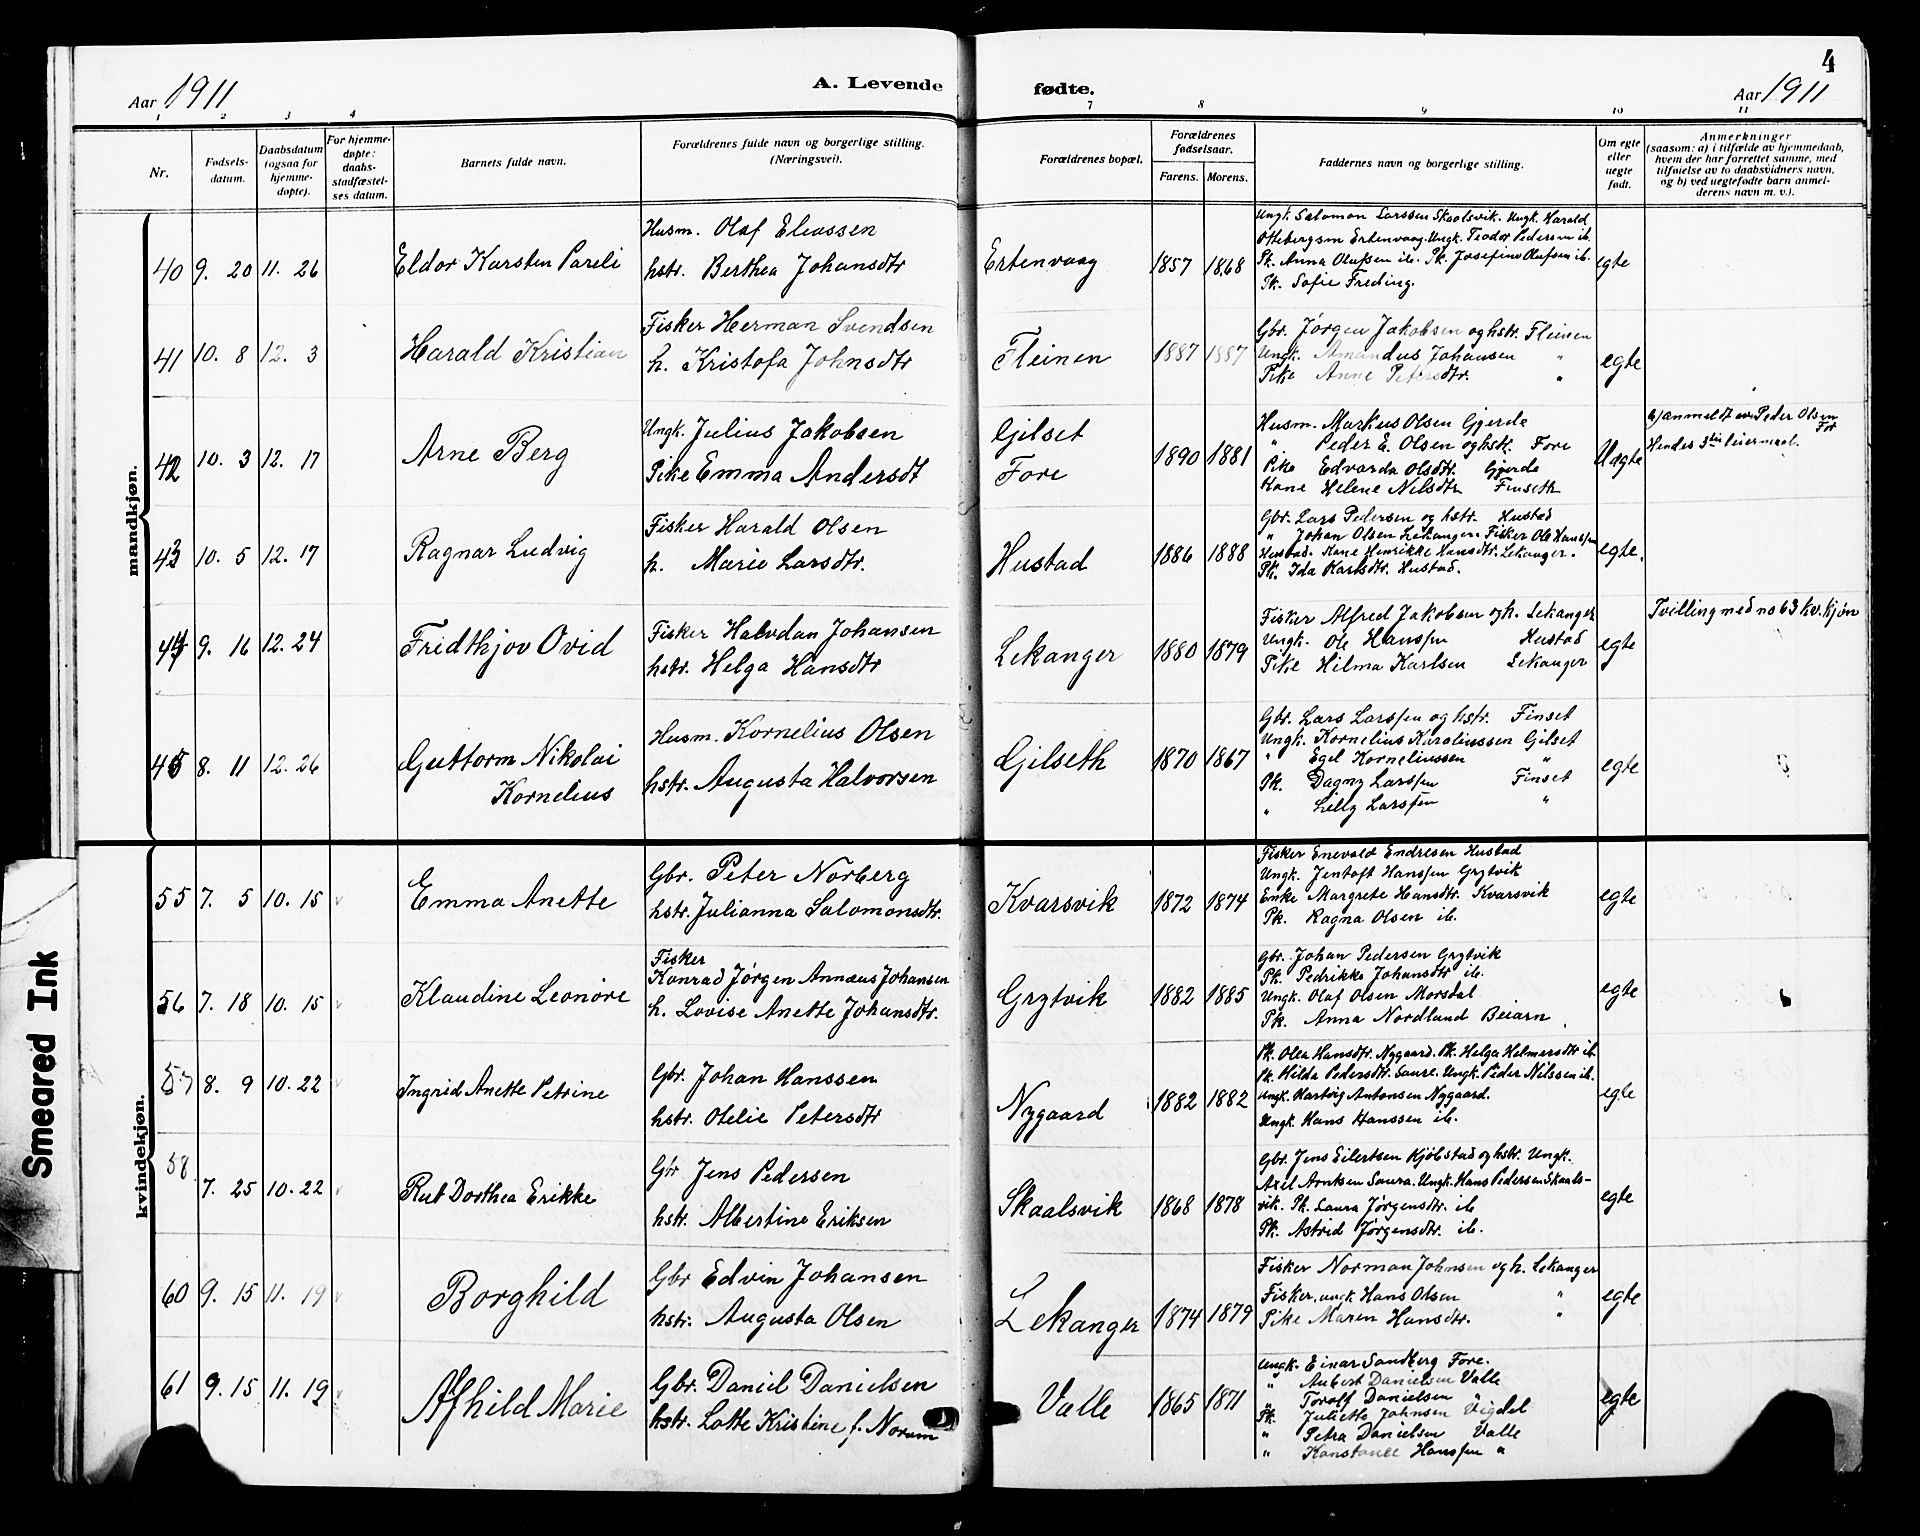 4
Aar 1911
A. Levende
fødte.
Aar 1911
1 2 3 4 7 8 9 10 11
Nr.
Fødsels-
datum.
Daabsdatum
(ogsaa for
hjemme-
døpte).
For hjemme-
døpte:
daabs-
stadfæstel-
ses datum.
Barnets fulde navn.
Forældrenes fulde navn og borgerlige stilling.
(Næringsvei).
Forældrenes bopæl.
Forældrenes
fødselsaar.
Farens. Morens.
Faddernes navn og borgerlige stilling.
Om egte
eller
uegte
født.
Anmerkninger
(saasom: a) i tilfælde av hjemmedaab,
hvem der har forrettet samme, med
tilføielse av to daabsvidners navn,
og b) ved uegtefødte barn anmel-
derens navn m. v.).
mandkjøn.
40 9. 20 11. 26
Eldor Karsten Pareli
Husm. Olaf Eleassen
hstr. Berthea Johansdtr
Ertenvaag
1857 1868
Ungk. Salomon Larssen Skaalsvik. Ungk. Harald
Ottebergsm Ertenvaag. Ungk. Teodor Pedersen ib.
Pk. Anna Olufsen ib. Pk. Josefine Olufsen ib.
Pk. Sofie Freding.
egte
41 10. 8 12. 3
Harald Kristian
Fisker Herman Svendsen
h. Kristofa Johnsdtr
Fleinen
1887 1887
Gbr. Jørgen Jakobsen og hstr. Fleinen
Ungk. Amandus Johansen "
Pike Anne Petersdtr. "
egte
42 10. 3 12. 17
Arne Berg
Ungk. Julius Jakobsen
Pike Emma Andersdt
Gilset
Fore
1890 1881
Husm. Markus Olsen Gjerde
" Peder E. Olsen og hstr. Fore
Pike Edvarda Olsdtr. Gjerde
Kone Helene Nilsdtr Finseth
Uegte
b) anmeldt av Peder Olsen
For
Hendes 3die leiermaal.
43 10. 5 12. 17
Ragnar Ludvig
Fisker Harald Olsen
h. Marie Larsdtr.
Hustad
1886 1888
Gbr. Lars Pedersen og hstr. Hustad
" Johan Olsen Lekanger. Fisker Ole Hanssen
Hustad. Kone Henrikke Hansdtr. Lekanger.
Pk. Ida Karlsdtr. Hustad.
egte.
44 9. 16 12. 24
Fridthjov Ovid
Fisker Halvdan Johansen
hstr. Helga Hansdtr
Lekanger
1880 1879
Fisker Alfred Jakobsen og h. Lekanger
Ungk. Ole Hanssen Hustad
Pike Hilma Karlsen Lekanger
egte
Tvilling med no 63 kv. kjøn
45 8. 11 12. 26
Guttorm Nikolai
Kornelius
Husm. Kornelius Olsen
hstr. Augusta Halvorsen
Gilseth
1870 1867
Gbr. Lars Larssen og hstr. Finset
Ungk. Kornelius Karoliussen Gilset
" Egil Korneliussen "
Pk. Dagny Larssen Finset
" Lilly Larssen "
egte
kvindekjøn.
55 7. 5 10. 15
Emma Anette
Gbr. Peter Norberg
hstr. Julianna Salomonsdtr.
Kvarsvik
1872 1874
Fisker Enevold Endresen Hustad
Ungk. Jentoft Hanssen Grytvik
Enke Margrete Hansdtr. Kvarsvik
Pk. Ragna Olsen ib.
egte
56 7. 18 10. 15
Klaudine Leonore
Fisker
Konrad Jørgen Annæus Johansen
h. Lovise Anette Johansdtr.
Grytvik
1882 1885
Gbr. Johan Pedersen Grytvik
Pk. Pedrikke Johansdtr ib.
Ungk. Olaf Olsen Morsdal
Pk. Anna Nordland Beiarn
egte
57 8. 9 10. 22
Ingrid Anette Petrine
Gbr. Johan Hanssen
hstr. Otelie Petersdtr
Nygaard
1882 1882
Pk. Olea Hansdtr. Nygaard. Pk. Helga Helmersdtr ib.
Pk. Hilda Pedersdtr. Saure. Ungk. Peder Nilssen ib.
Ungk. Hartvig Antonsen Nygaard.
Ungk. Hans Hanssen ib.
egte
58 7. 25 10. 22
Rut Dorthea Erikke
Gbr Jens Pedersen
hstr. Albertine Eriksen
Skaalsvik
1868 1878
Gbr. Jens Eilertsen Kjøbstad og hstr. Ungk.
Axel Arntsen Saura. Ungk. Hans Pedersen Skaals-
vik. Pk. Laura Jørgensdtr. ib
Pk. Astrid Jørgensdtr. ib.
egte
60 9. 15 11. 19
Borghild
Gbr Edvin Johansen
hstr. Augusta Olsen
Lekanger
1874 1879
Fisker Norman Johnsen og h. Lekanger
Fisker, ungk Hans Olsen "
Pike Maren Hansdtr. "
egte
61 9. 15 11. 19
Afhild Marie
Gbr. Daniel Danielsen
hstr. Lotte Kristine f. Norum
Valle
1865 1871
Ungk. Einar Sandberg Fore.
" Aubert Danielsen Valle
" Toralf Danielsen "
Pk. Juliette Johnsen Vigdel
" Petra Danielsen Valle
" Konstance Hanssen "
egte
Smeared Ink